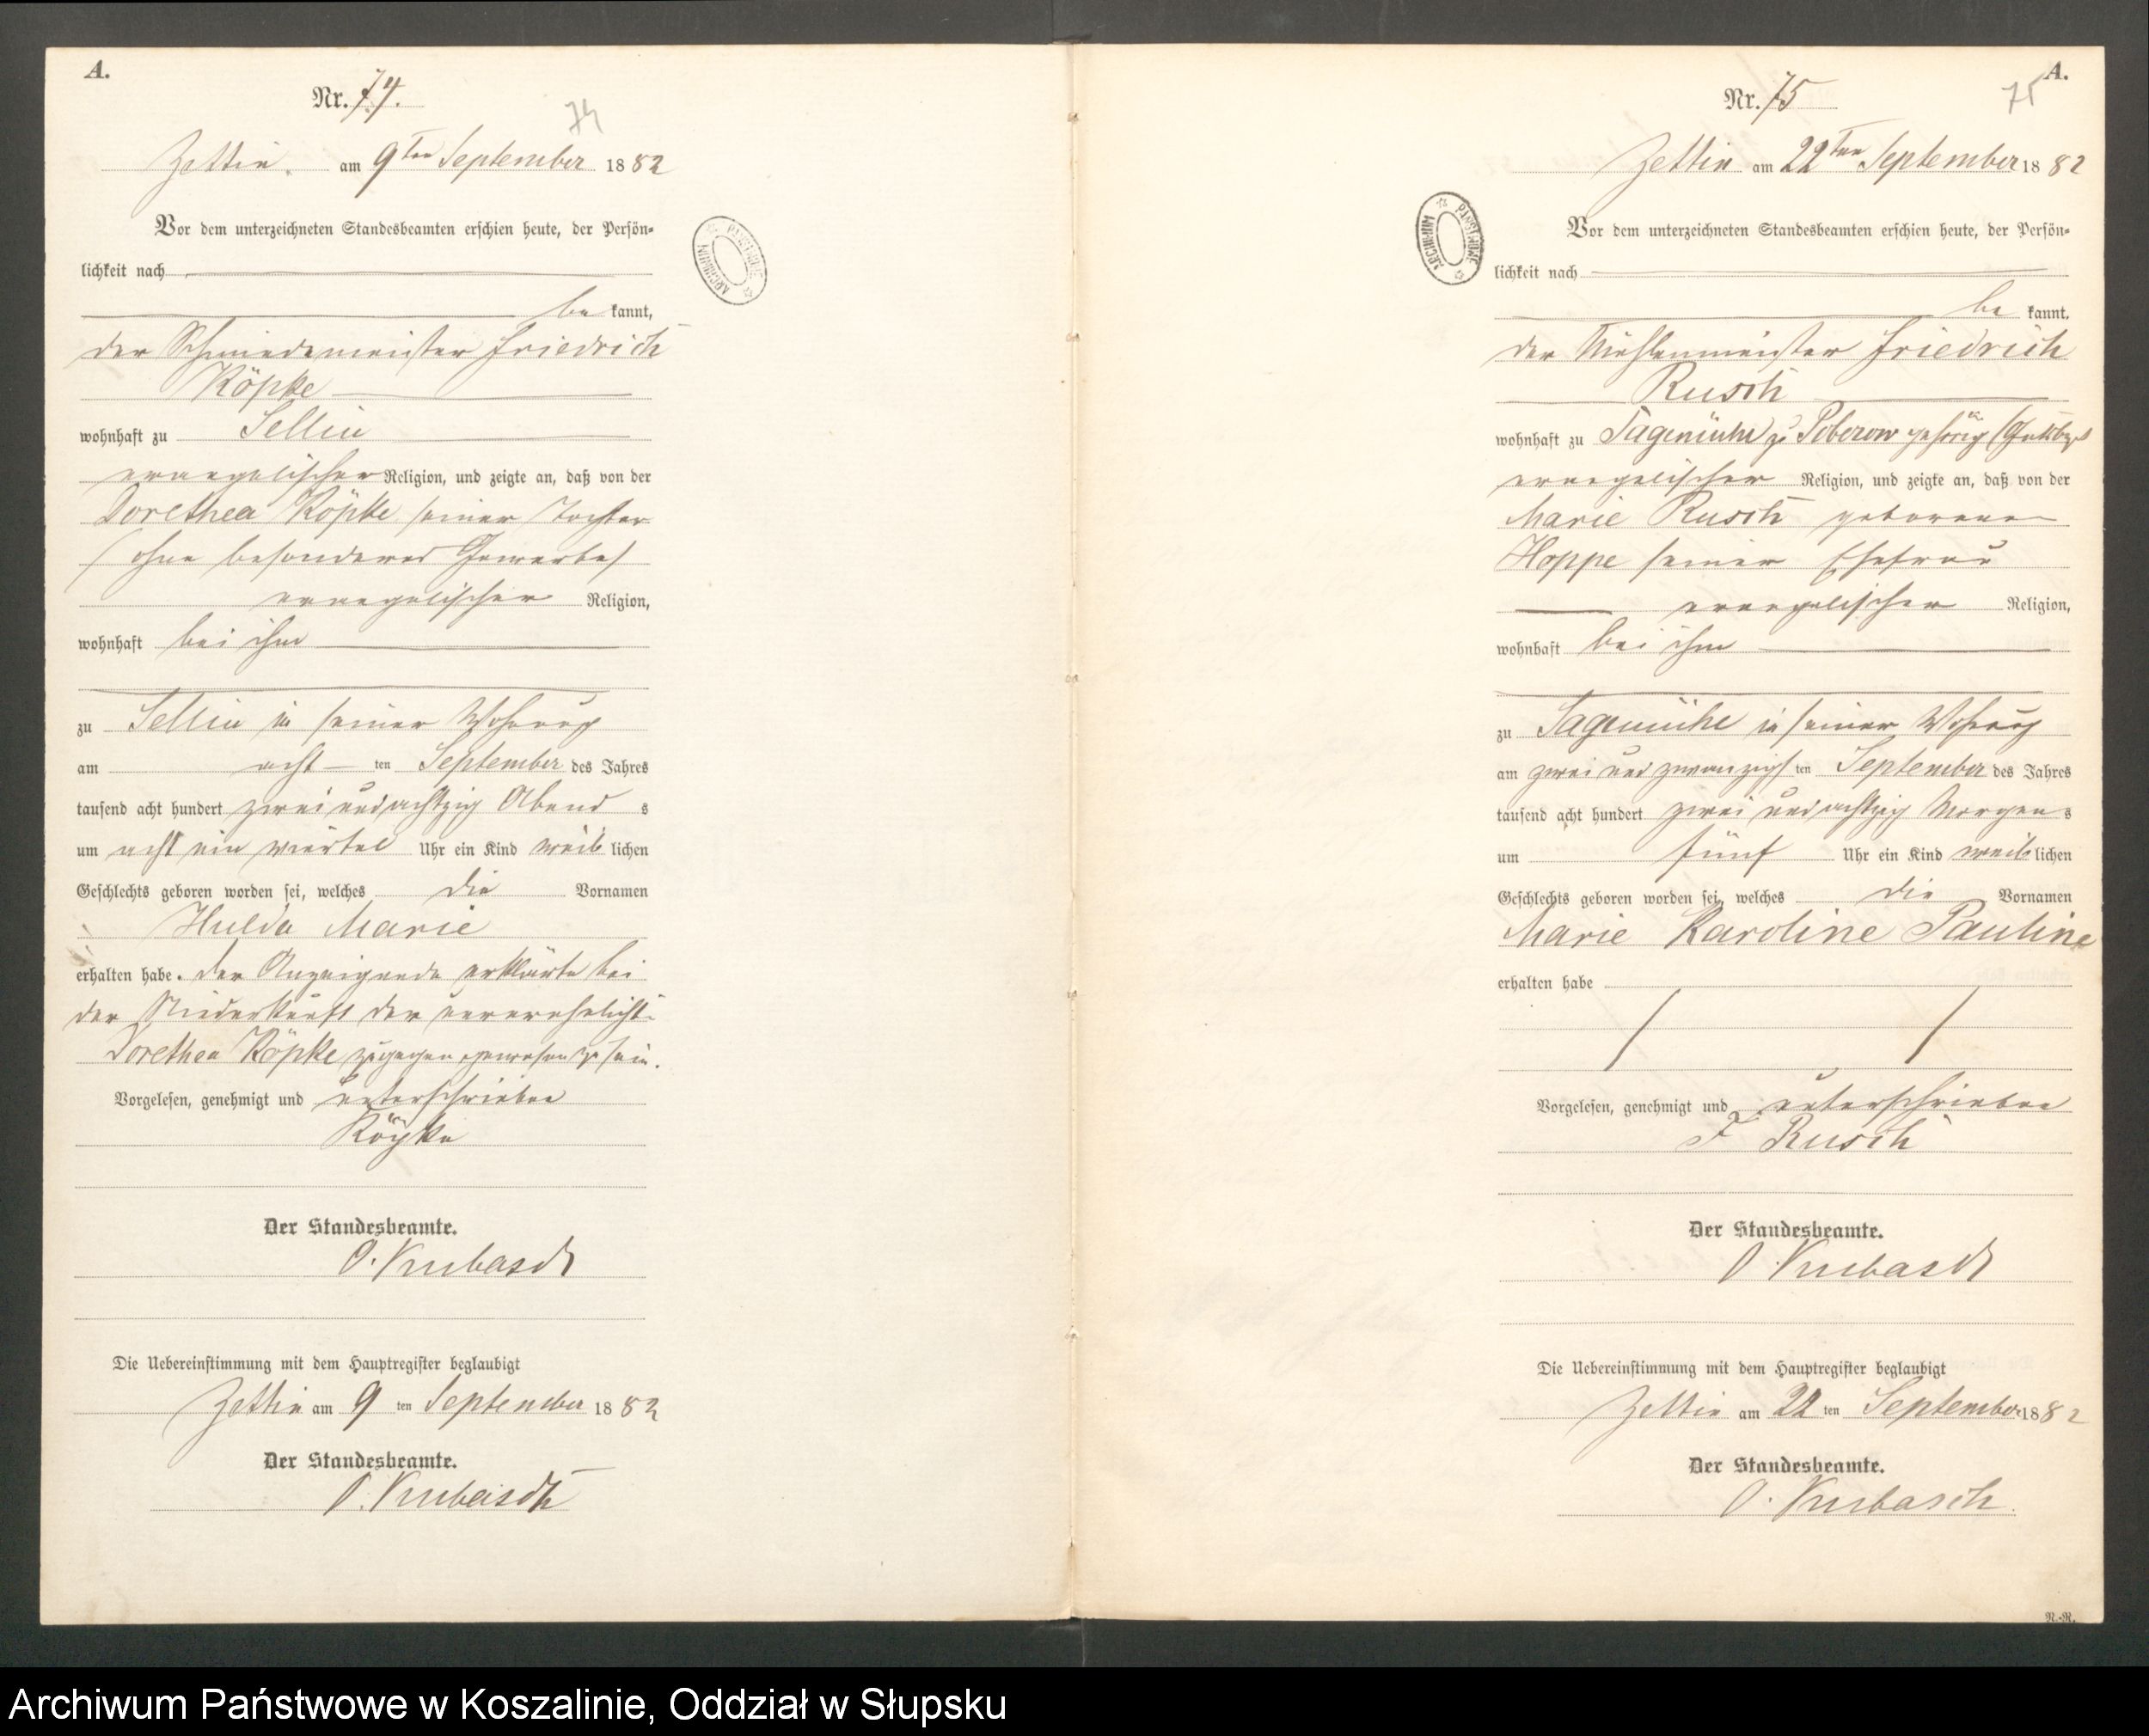 A.
Nr. 74.
74
Zettin. am 9ten September 1882
Vor dem unterzeichneten Standesbeamten erschien heute, der Persön-
lichkeit nach
be kannt,
der Schmiedemeister Friedrich
Köpke
wohnhaft zu Sellin
evangelischer Religion, und zeigte an, daß von der
Dorethea Köpke seiner Tochter
(ohne besonderes Gewerbe)
evangelischer Religion,
wohnhaft bei ihm
zu Sellin in seiner Wohnung
am acht ten September des Jahres
tausend acht hundert zwei und achtzig Abend s
um acht ein viertel Uhr ein Kind weib lichen
Geschlechts geboren worden sei, welches die Vornamen
Hulda Marie
erhalten habe. Der Anzeigende erklärte bei
der Niederkunft der unverehelicht.
Dorethea Köpke zugegen gewesen zu sein.
Vorgelesen, genehmigt und unterschrieben
Köpke
Der Standesbeamte.
O. Kubasch
Die Uebereinstimmung mit dem Hauptregister beglaubigt
Zettin am 9 ten September 1882
Der Standesbeamte.
O. Kubasch
A.
Nr. 75
75
Zettin am 22ten September 1882
ARCHIWUM PAŃSTWOWE
Vor dem unterzeichneten Standesbeamten erschien heute, der Persön-
lichkeit nach
be kannt,
der Mühlenmeister Friedrich
Rusch
wohnhaft zu Sagemühle zu Poberow gehörig
evangelischer Religion, und zeigte an, daß von der
Marie Rusch geborenen
Hoppe seiner Ehefrau
evangelischer Religion,
wohnhaft bei ihm
zu Sagemühle in seiner Wohnung
am zwei und zwanzigs ten September des Jahres
tausend acht hundert zwei und achtzig Morgen s
um fünf Uhr ein Kind weib lichen
Geschlechts geboren worden sei, welches die Vornamen
Marie Karoline Pauline
erhalten habe
Vorgelesen, genehmigt und unterschrieben
F Rusch
Der Standesbeamte.
O. Kubasch
Die Uebereinstimmung mit dem Hauptregister beglaubigt
Zettin am 22 ten September 1882
Der Standesbeamte.
O. Kubasch.
N.-R.
Archiwum Państwowe w Koszalinie, Oddział w Słupsku